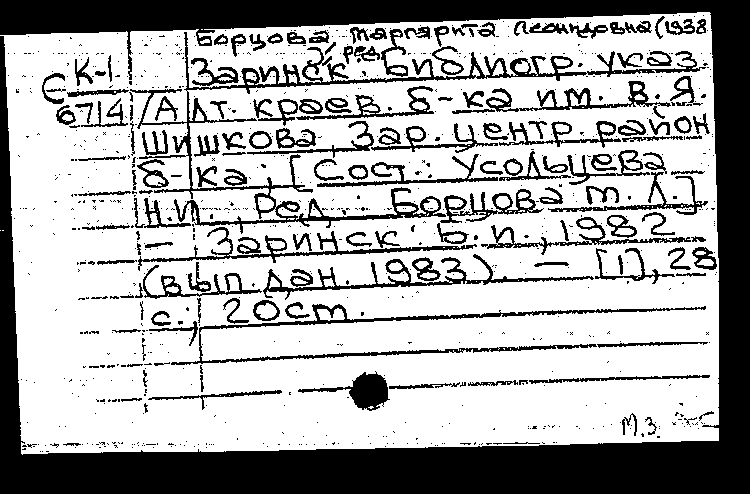 Борцова Маргарита Леонидовна (1938
ред.
К-1 Заринск: Библиогр. указ.
С
6714 /Алт. краев. б-ка им. В.Я.
Шишкова, Зар. центр. район
б-ка; [Сост.: Усольцева
Н.П.; Ред.: Борцова М.Л.]
– Заринск: Б.и., 1982
(вып.дан. 1983). – [1], 28
с.; 20см.
М.З.